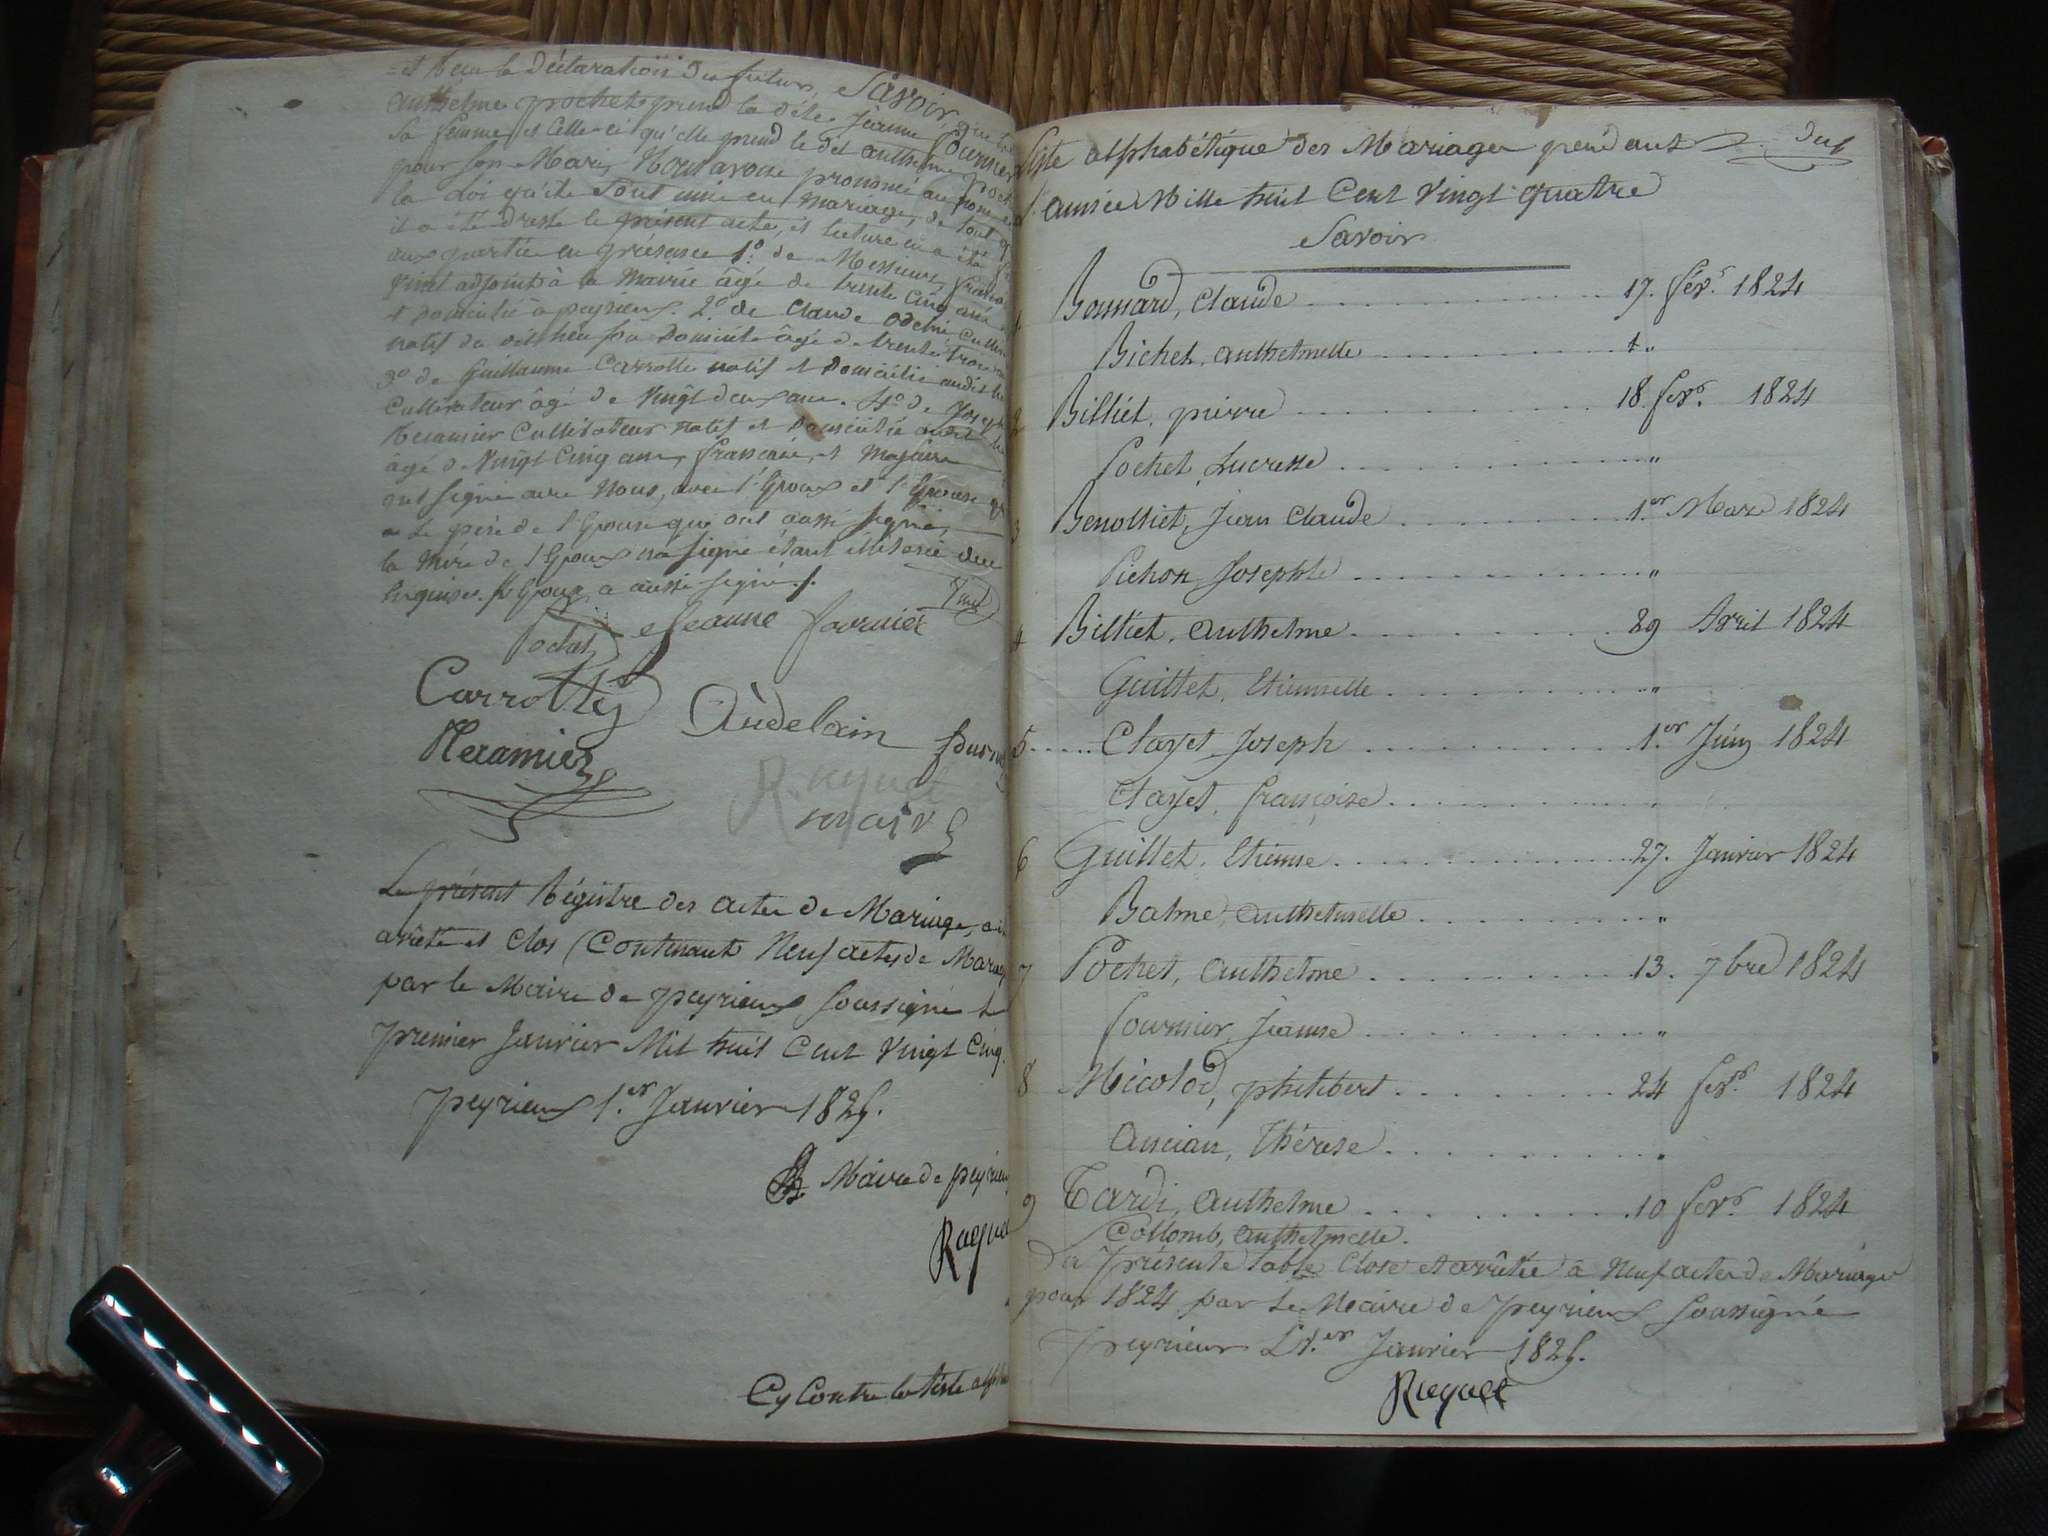 et Reçu la déclaration des futurs, Savoir, que
anthelme pochet prend la dite Jeanne fournier
sa femme et celle-ci qu'elle prend le dit anthelme pochet
pour son Mari, Nous avons prononcé au nom de
la Loi qu'ils Sont unis en Mariage, de tout
il a été dressé le présent acte, et lecture en a été
aux parties en présence 1.º de Messieurs françois
Vinet adjoint à la Mairie âgé de trente Cinq ans
et domicilié à peyrieux. 2.º de Claude
natif du dit lieu y domicilié âgé de trente trois
3.º de Guillaume Carrotte natif et Domicilié audit
Cultivateur âgé de Vingt deux ans. 4.º de Joseph
Cultivateur natif et Domicilié audit
âgé de Vingt Cinq ans, français, et Majeurs
ont signé avec Nous, avec l'Epoux et l'Epouse
et le père de l'Epouse qui ont aussi signé,
la Mère de l'Epoux n'a signé étant
l'Epoux a aussi signé./.
Pochet Jeanne fournier Vinet
Carrotte Audelain
Mairé
Le présent Régistre des actes de Mariage, a
arrêté et Clos (Contenant Neuf actes de Mariage
par le Maire de peyrieux Soussigné le
premier Janvier Mil huit Cent Vingt Cinq.
peyrieux 1.er Janvier 1825.
Maire de peyrieux
Cy Contre la liste
Liste alphabétique des Mariages pendant
l'année Mille huit Cent Vingt quatre
Savoir
1 Bonnard, Claude 17. fév.r 1824
Bichet, anthelmette "
2 Billiet, pierre 18. fév.r 1824
Pochet, Lucresse "
3 Benolliet, Jean Claude 1.er Mars 1824
Pichon, Josephte "
4 Billiet, anthelme 29 Avril 1824
Guillet, Etiennette "
5 Clayet Joseph 1.er Juin 1824
Clayet, françoise "
6 Guillet, Etienne 27. Janvier 1824
Balme, anthelmette "
7 Pochet, anthelme 13. 7bre 1824
fournier, Jeanne "
8 Micolod, philibert 24 fév.r 1824
Ancian, Thérese "
9 Tardi, anthelme 10 fév.r 1824
Collomb, anthelmette.
La présente table Close et arrêtée à Neuf actes de Mariage
pour 1824 par le Maire de peyrieux Soussigné
peyrieux L 1.er Janvier 1825.